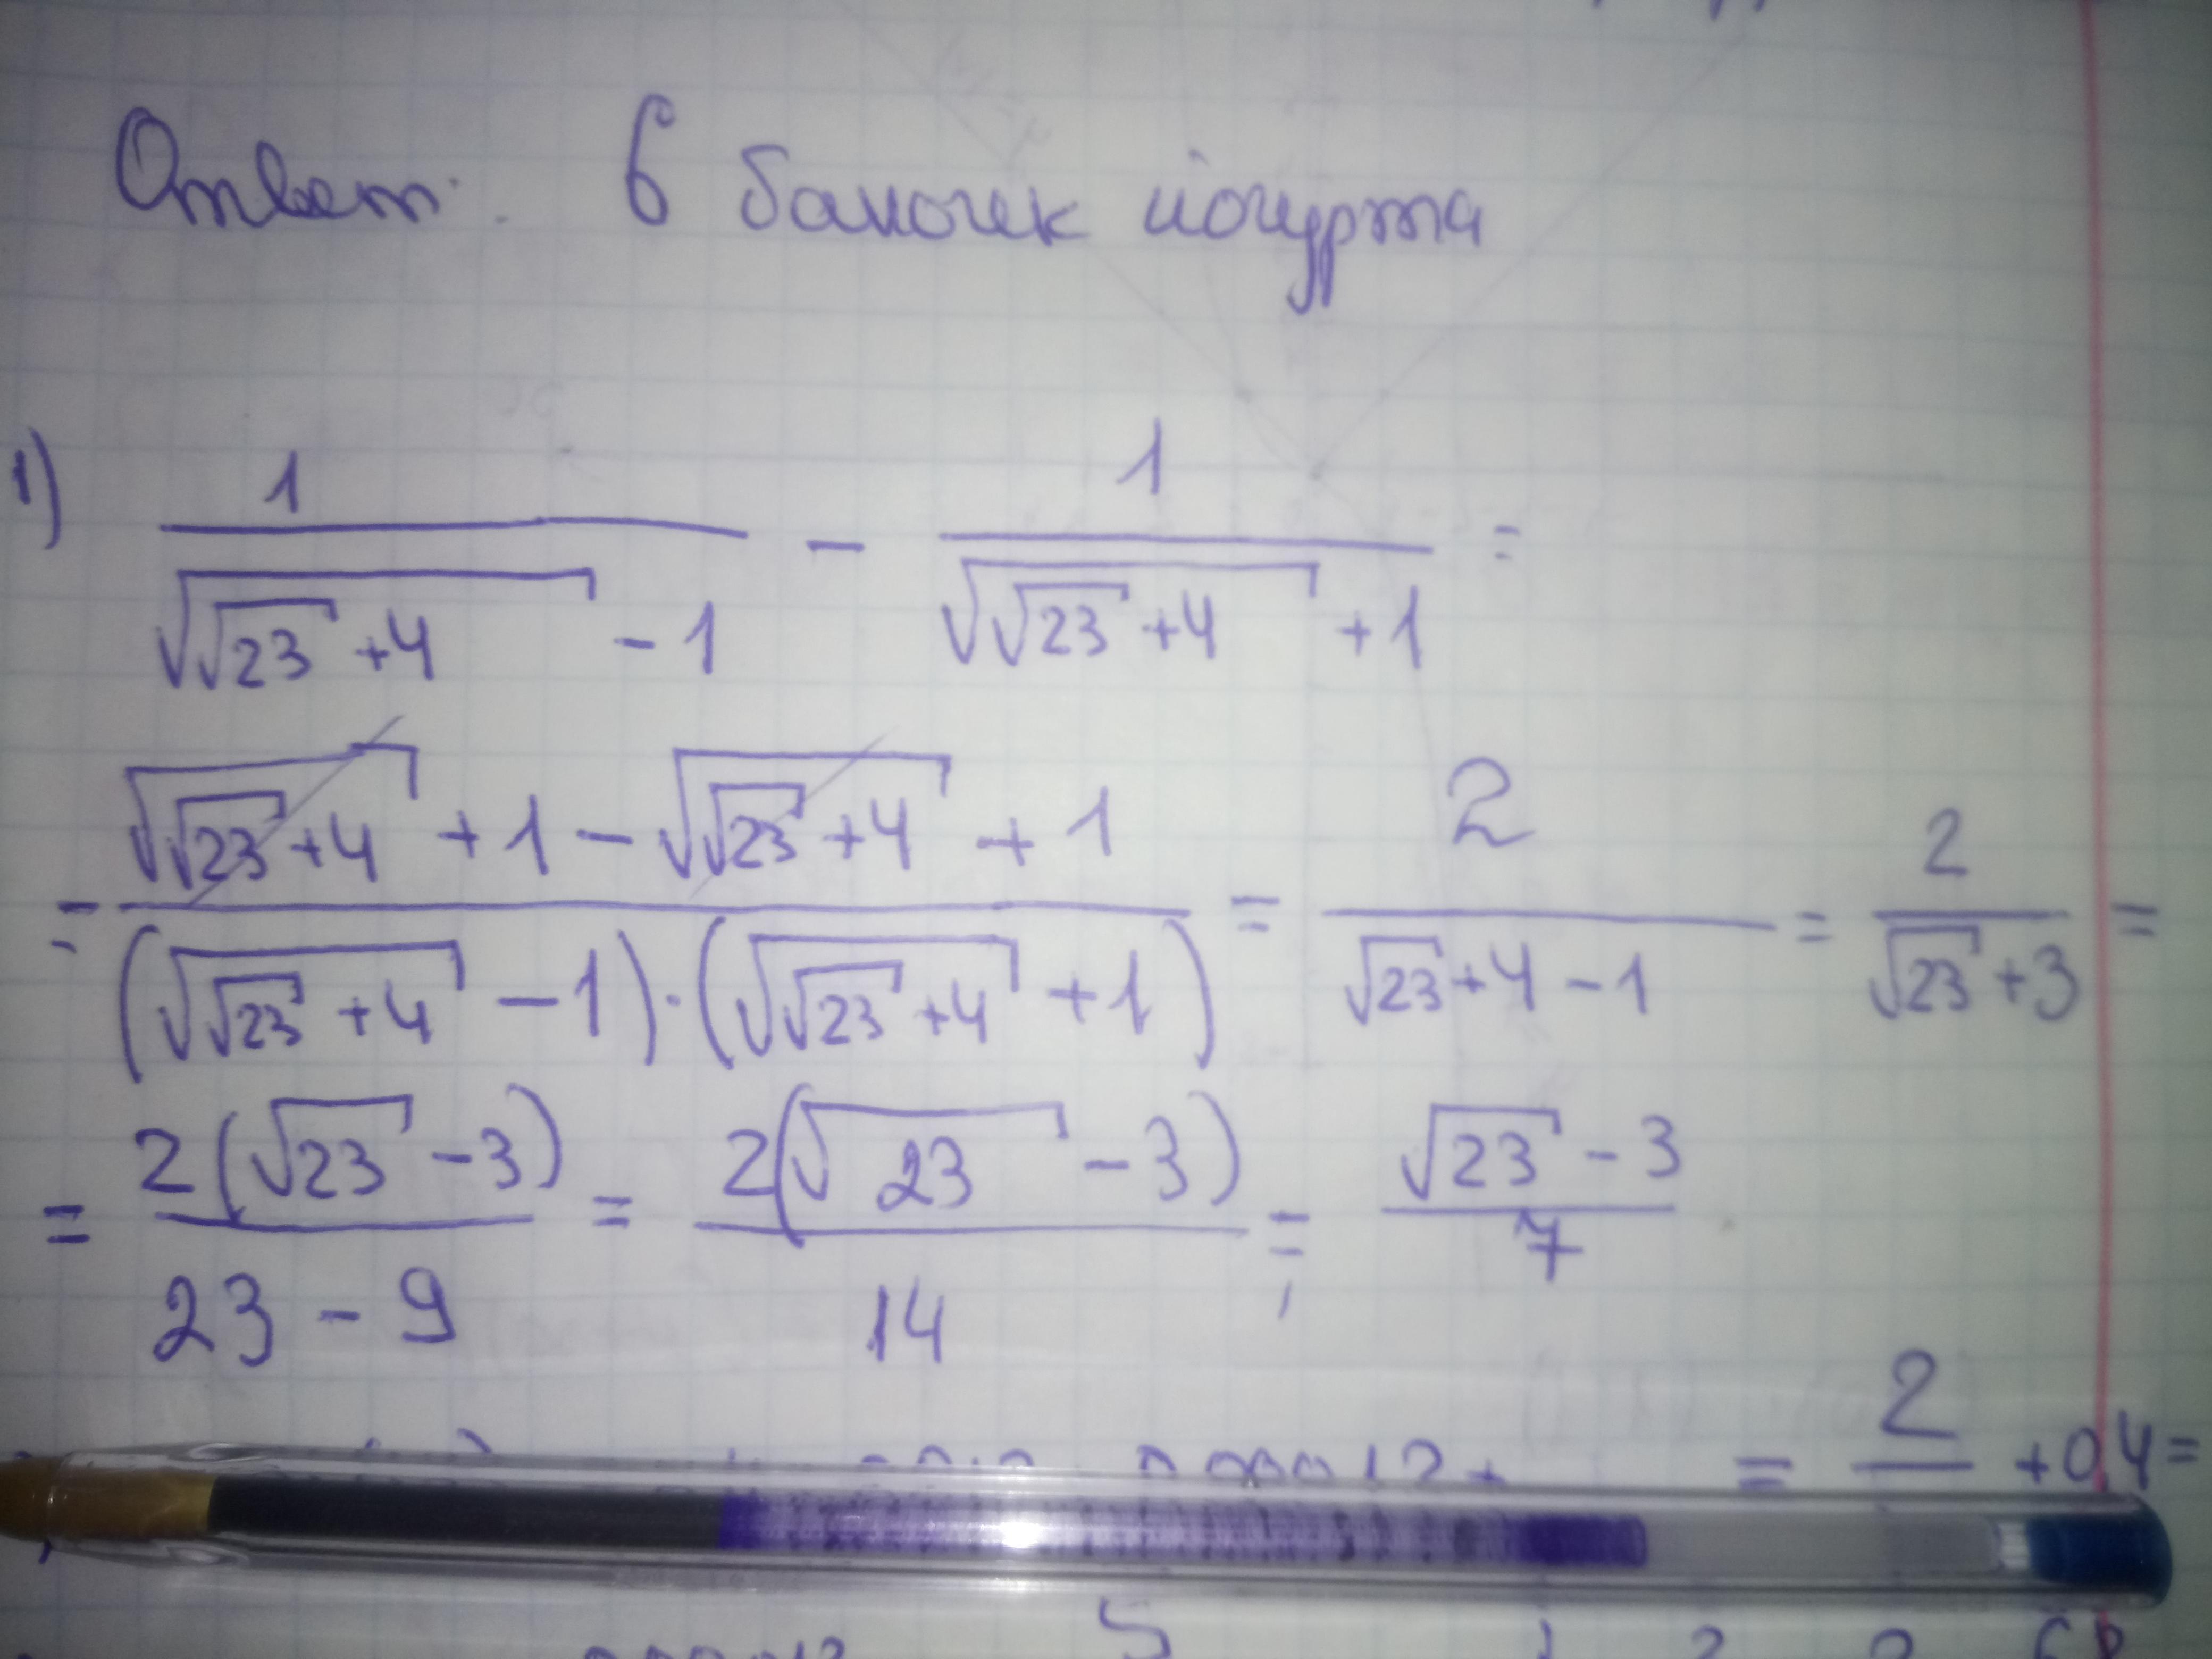 Ответ: 6 баночек йогурта
1) 1/(√(√23 + 4) - 1) - 1/(√(√23 + 4) + 1) =
= (√(√23 + 4) + 1 - √(√23 + 4) + 1)/((√(√23 + 4) - 1)·(√(√23 + 4) + 1)) = 2/(√23 + 4 - 1) = 2/(√23 + 3) =
= 2(√23 - 3)/(23 - 9) = 2(√23 - 3)/14 = (√23 - 3)/7
= 2 + 0,4 =